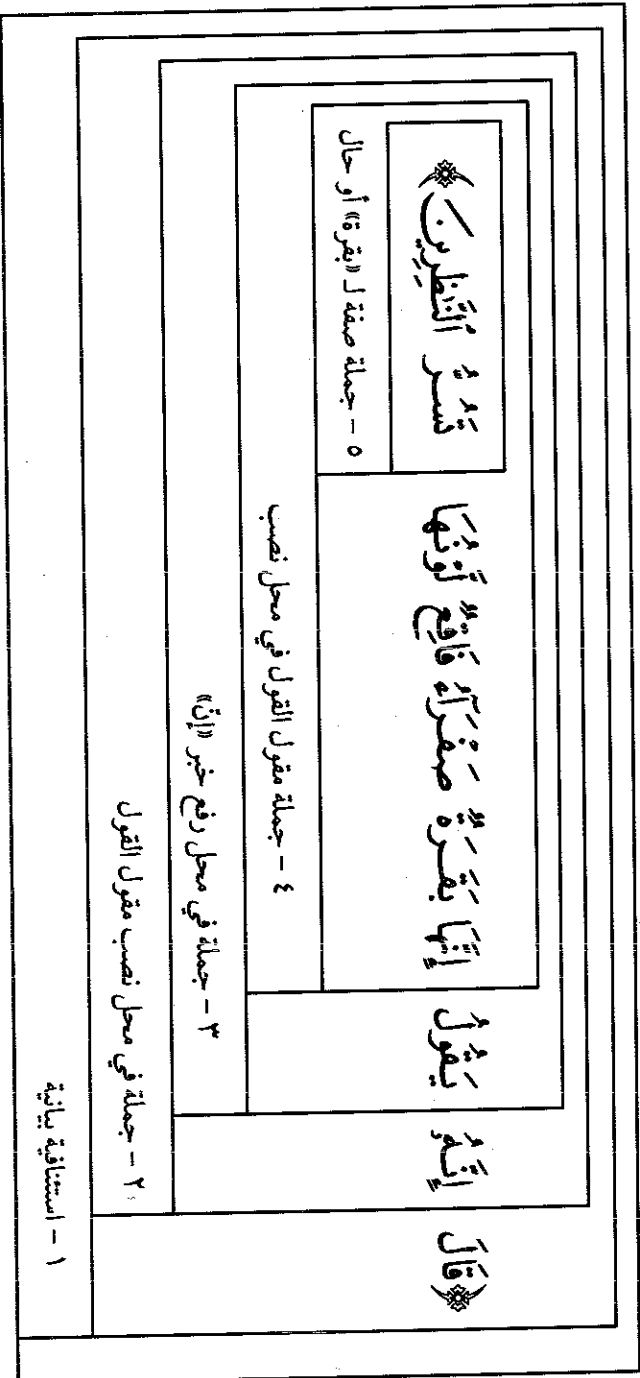 ﴿قَالَ إِنَّهُۥ يَقُولُ إِنَّهَا بَقَرَةٌ صَفْرَآءُ فَاقِعٌ لَّوْنُهَا تَسُرُّ ٱلنَّٰظِرِينَ﴾
٥ - جملة صفة لـ «بقرة» أو حال
٤ - جملة مقول القول في محل نصب
٣ - جملة في محل رفع خبر «إنّ»
٢ - جملة في محل نصب مقول القول
١ - استئنافية بيانية